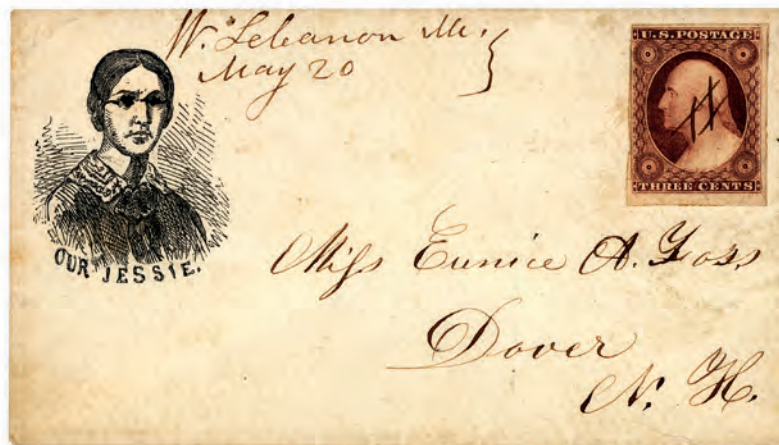 W. Lebanon Me.
May 20
U.S. POSTAGE
THREE CENTS
OUR JESSIE.
Miss Eunice A. Foss
Dover
N. H.